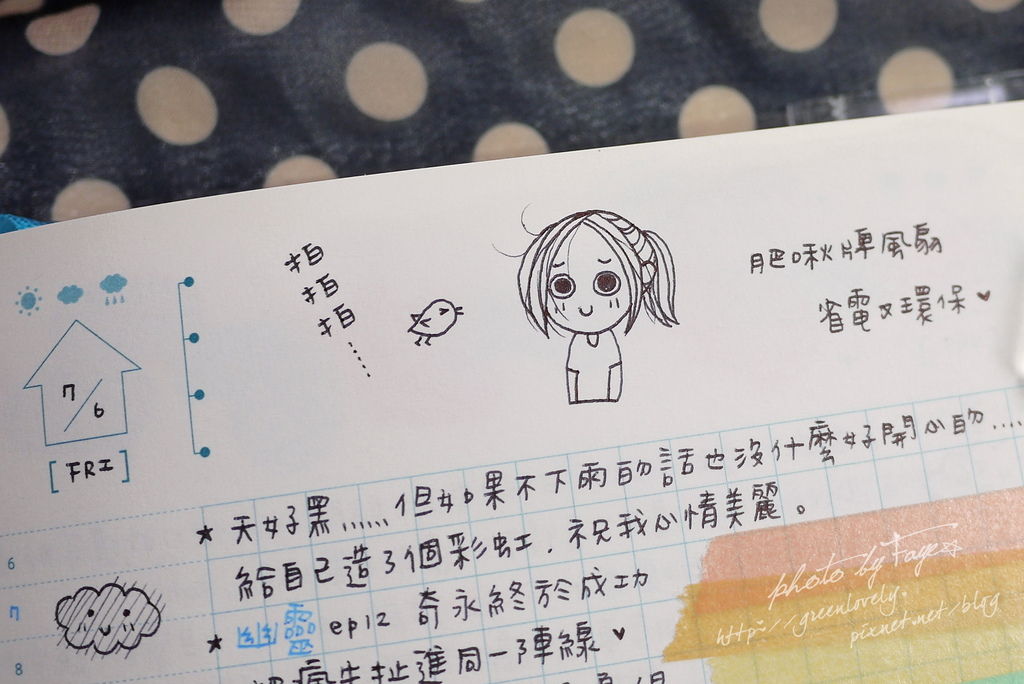 拍
拍
拍
......
肥啾牌風扇
省電又環保♥
7/6
[FRI]
★ 天好黑......但如果不下雨的話也沒什麼好開心的....
給自己造了個彩虹，祝我心情美麗。
★ 幽靈 ep12 奇永終於成功
把瘋牛扯進同一陣線♥
6
7
8
photo by Faye☆
http://greenlovely.
pixnet.net/blog